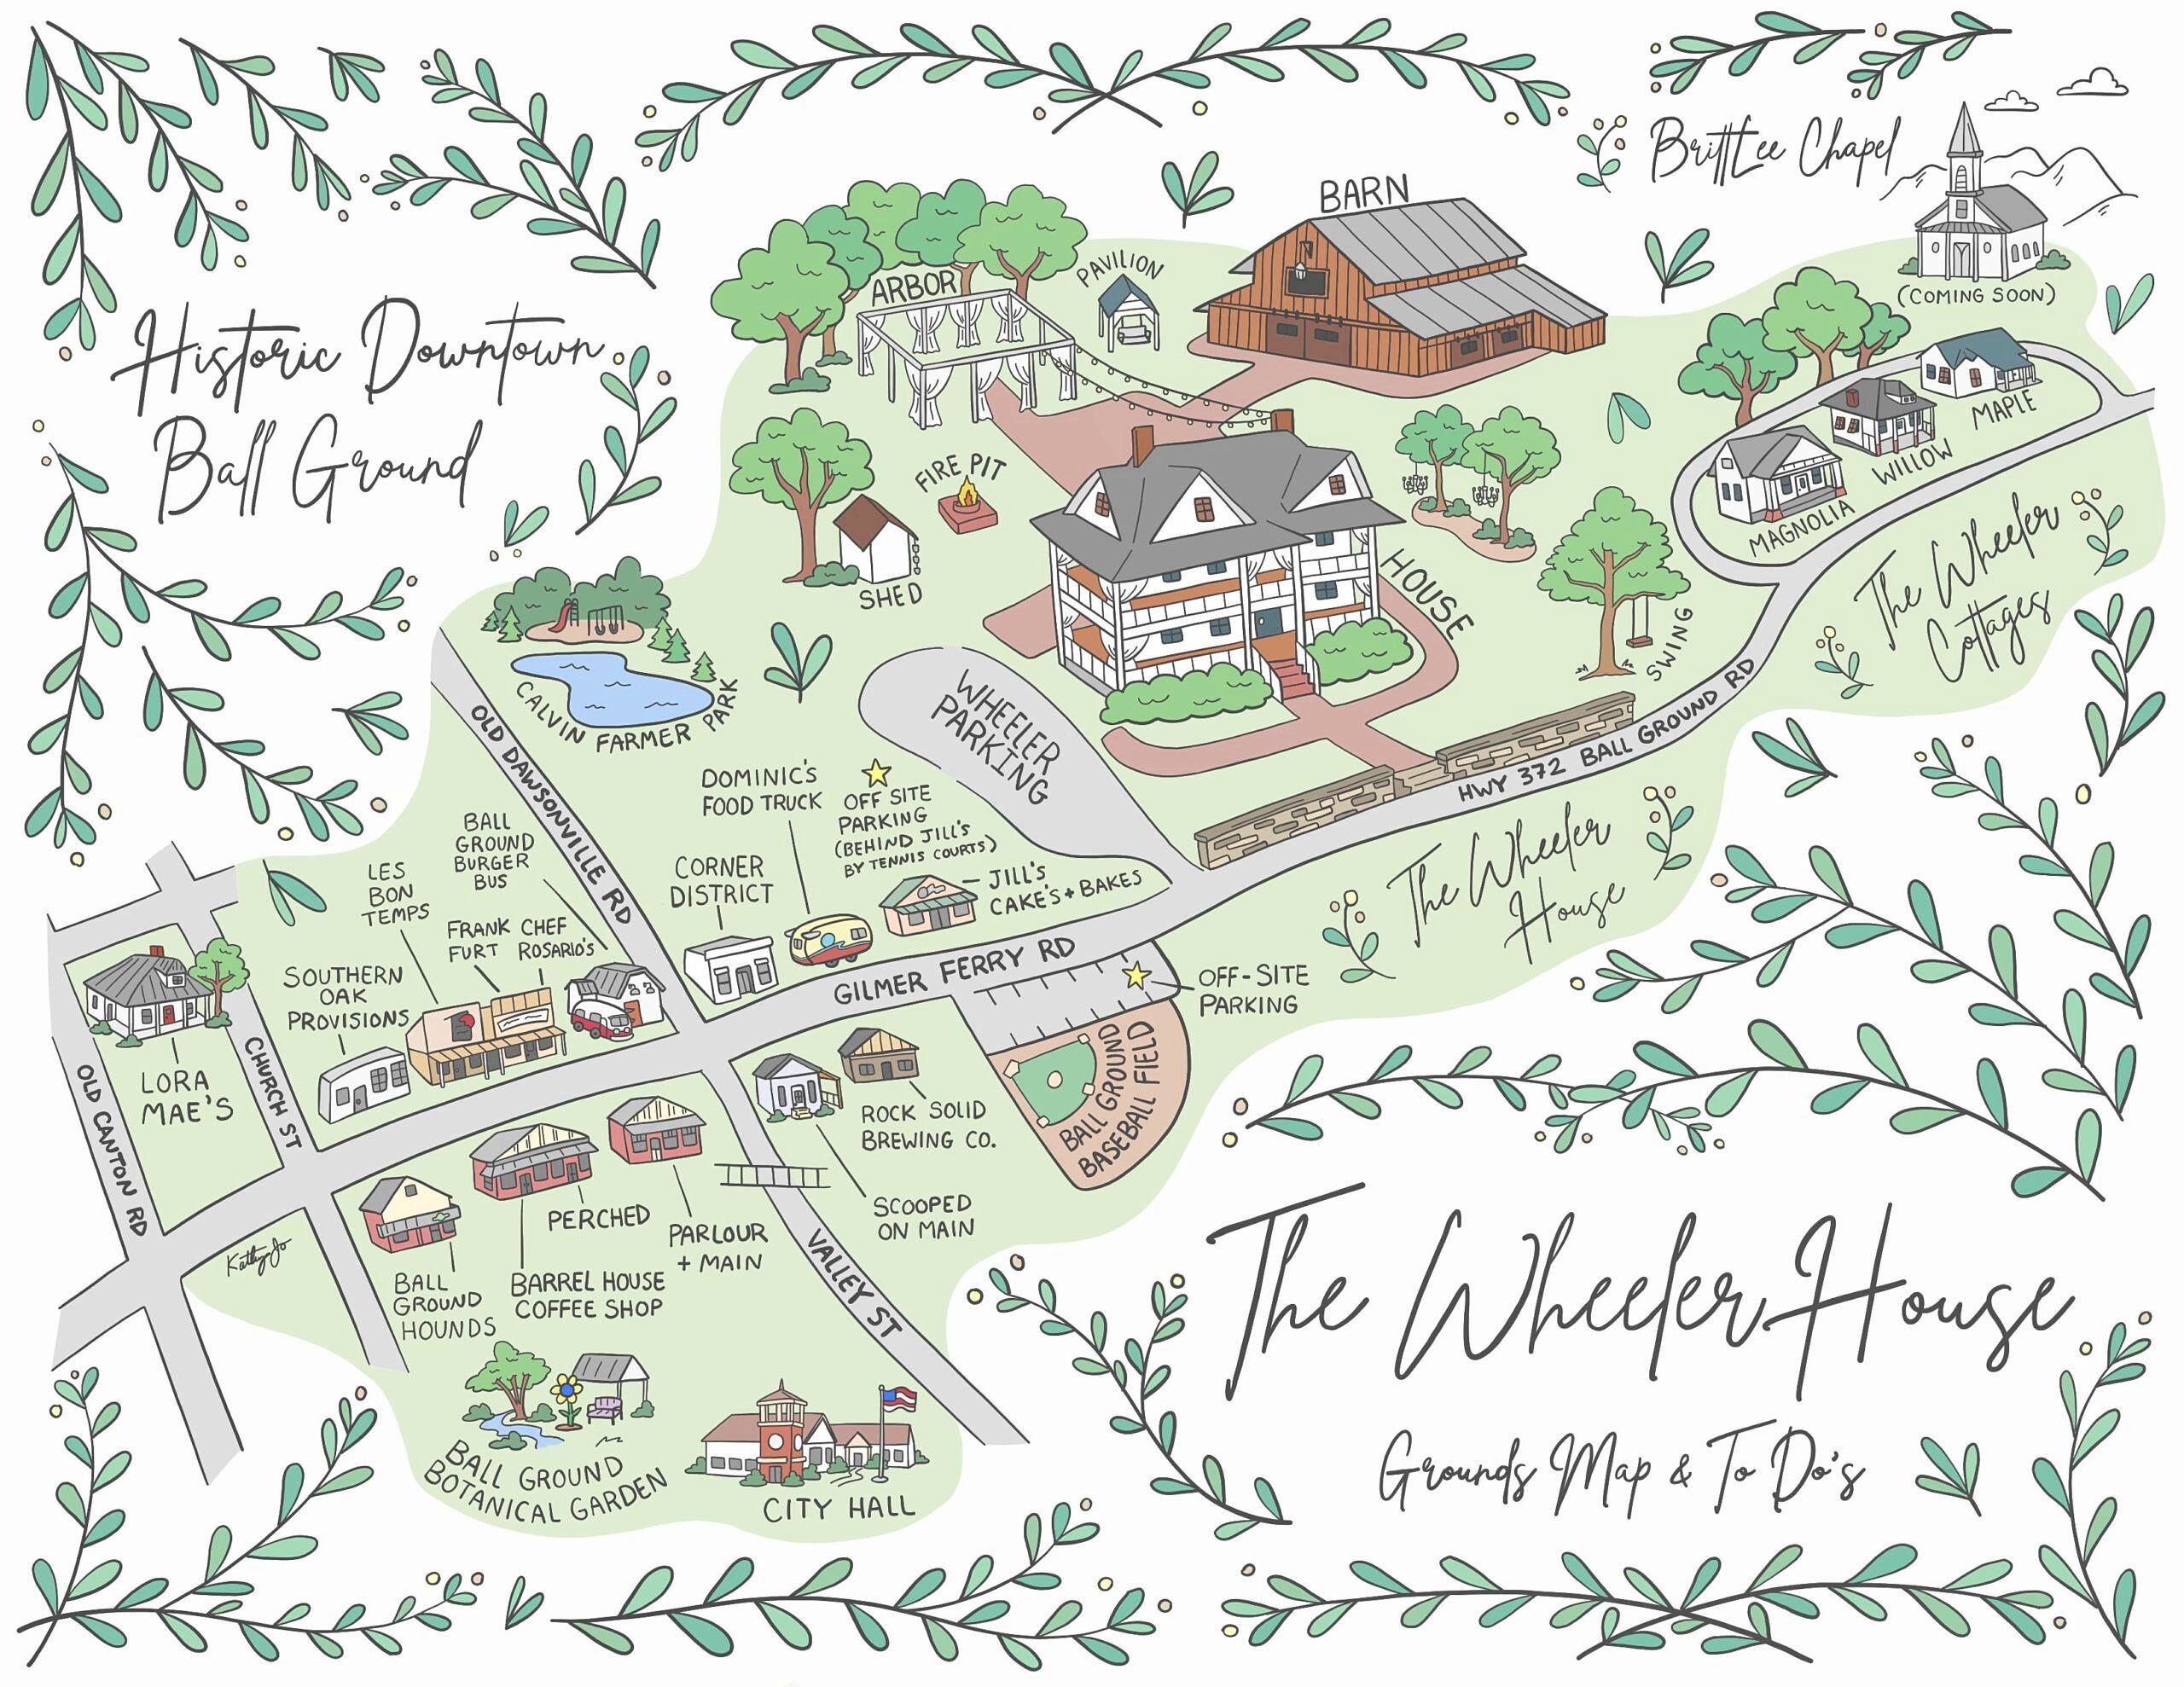 BrittLee Chapel
(COMING SOON)
BARN
PAVILION
ARBOR
Historic Downtown
Ball Ground
FIRE PIT
SHED
HOUSE
SWING
MAPLE
WILLOW
MAGNOLIA
The Wheeler
Cottages
CALVIN FARMER PARK
WHEELER
PARKING
HWY 372 BALL GROUND RD
The Wheeler
House
OLD DAWSONVILLE RD
DOMINIC'S
FOOD TRUCK
OFF SITE
PARKING
(BEHIND JILL'S
BY TENNIS COURTS)
JILL'S
CAKE'S + BAKES
CORNER
DISTRICT
BALL
GROUND
BURGER
BUS
LES
BON
TEMPS
FRANK
FURT
CHEF
ROSARIO'S
SOUTHERN
OAK
PROVISIONS
GILMER FERRY RD
OFF-SITE
PARKING
BALL GROUND
BASEBALL FIELD
LORA
MAE'S
CHURCH ST
OLD CANTON RD
ROCK SOLID
BREWING CO.
SCOOPED
ON MAIN
PERCHED
PARLOUR
+ MAIN
BALL
GROUND
HOUNDS
BARREL HOUSE
COFFEE SHOP
VALLEY ST
Kathy Jo
BALL GROUND
BOTANICAL GARDEN
CITY HALL
The Wheeler House
Grounds Map & To Do's